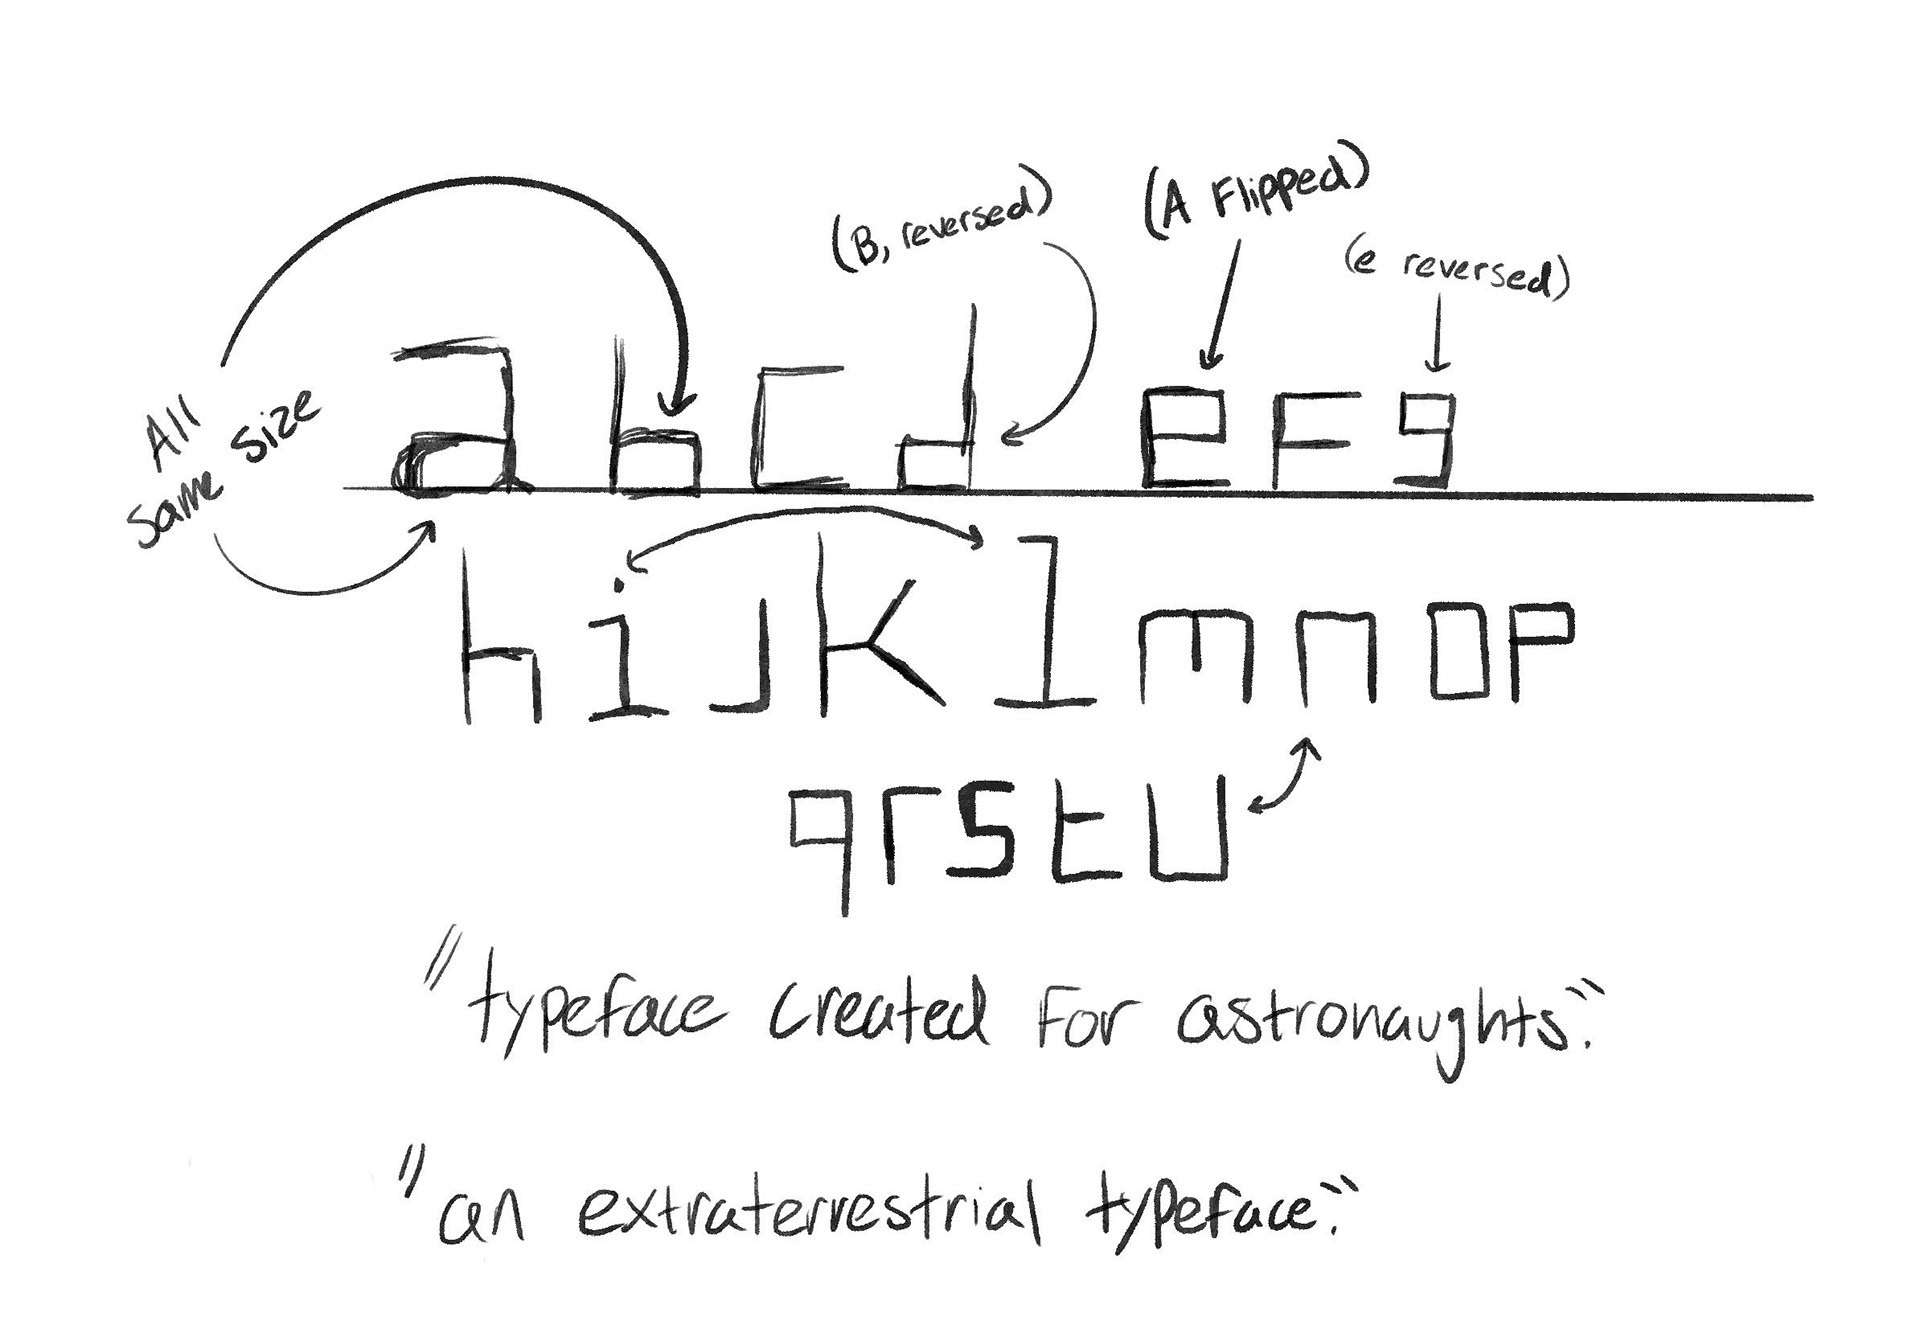 (A Flipped)
(B, reversed)
(e reversed)
All
Same Size
a b c d e F g
h i J K l m n o p
q r s t u
"typeface created For astronaughts."
"an extraterrestrial typeface."